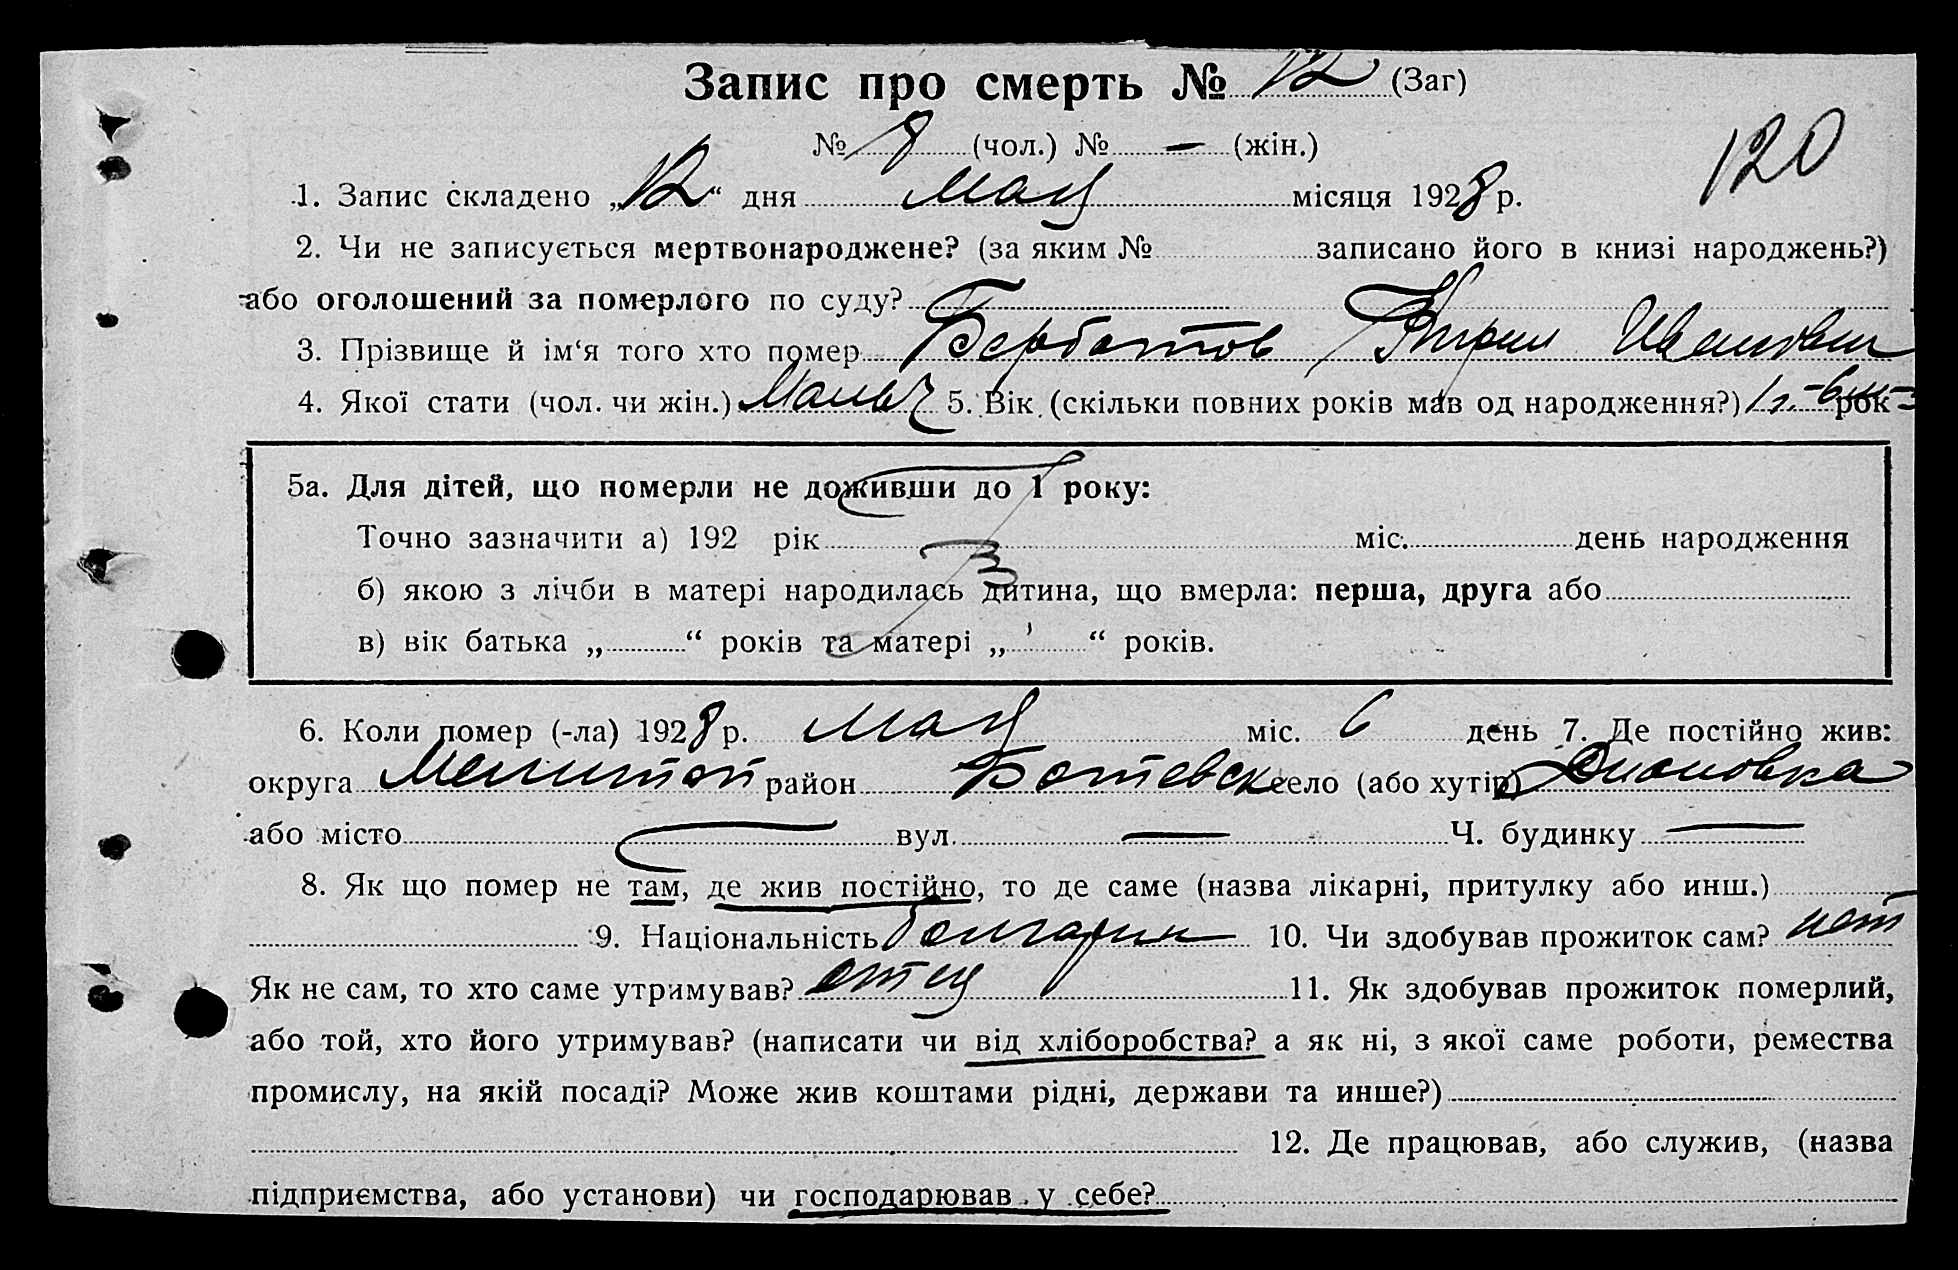 Запис про смерть № 12 (Заг)
№ 8 (чол.) № — (жін.)
120
1. Запис складено „12“ дня мая місяця 1928 р.
2. Чи не записується мертвонароджене? (за яким № записано його в книзі народжень?)
або оголошений за померлого по суду?
3. Прізвище й ім‘я того хто помер Бербатов Кирил Иванович
4. Якої стати (чол. чи жін.) 5. Вік (скільки повних років мав од народження?) 1 г. 6 м рок
5а. Для дітей, що померли не доживши до 1 року:
Точно зазначити а) 192 рік міс. день народження
б) якою з лічби в матері народилась дитина, що вмерла: перша, друга або 3
в) вік батька „ “ років та матері „ “ років.
6. Коли помер (-ла) 1928 р. мая міс. 6 день 7. Де постійно жив:
округа Мелитоп район Ботевск село (або хутір)
або місто — вул. — Ч. будинку —
8. Як що помер не там, де жив постійно, то де саме (назва лікарні, притулку або инш.)
9. Національність болгарин 10. Чи здобував прожиток сам? нет
Як не сам, то хто саме утримував? отец 11. Як здобував прожиток померлий,
або той, хто його утримував? (написати чи від хліборобства? а як ні, з якої саме роботи, ремества
промислу, на якій посаді? Може жив коштами рідні, держави та инше?)
12. Де працював, або служив, (назва
підприємства, або установи) чи господарював у себе?